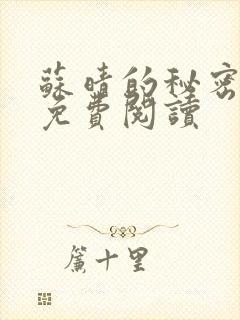 蘇晴的秘密
免費閱讀
簾十里